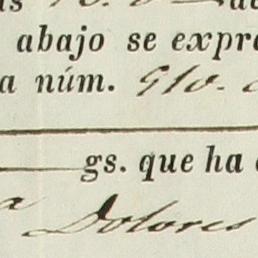 abajo se expre
a núm. 910.
gs. que ha
a Dolores